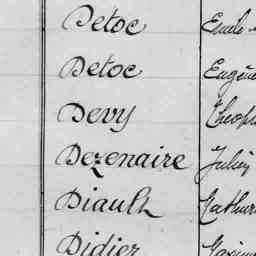 Detoc Emile
Detoc Eugène
Devy Théoph
Dezenaire Julien
Diault Mathur
Didier Maxim